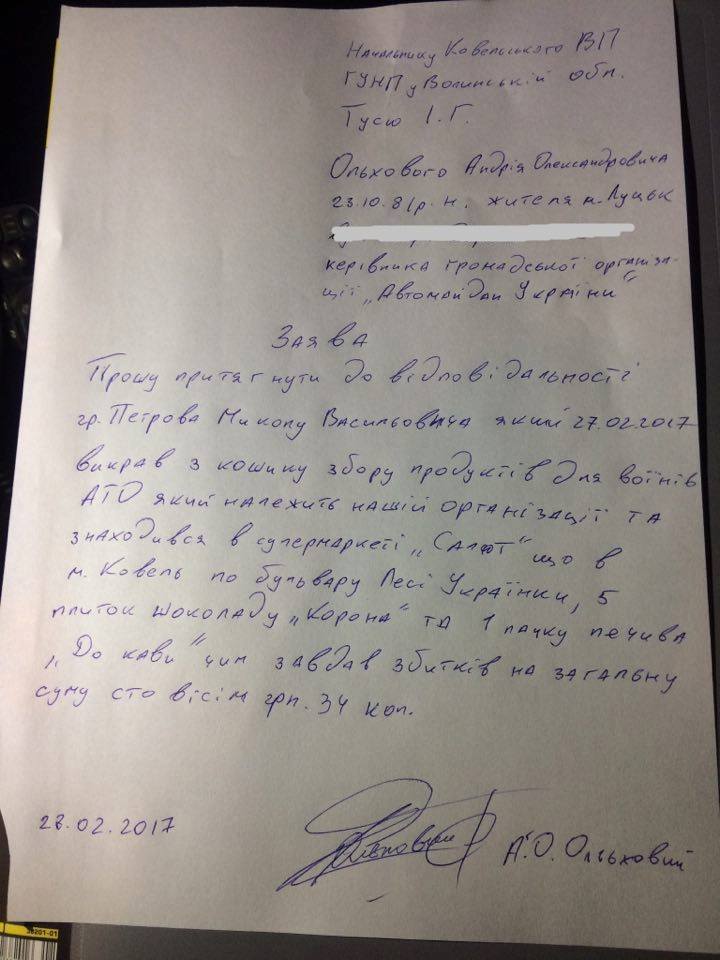 Начальнику Ковельського ВП
ГУНП у Волинській обл.
Тусю І. Г.
Ольхового Андрія Олександровича
23.10.81р.н. жителя м. Луцьк
керівника громадської організа-
ції „Автомайдан України"
Заява
Прошу притягнути до відповідальності
гр. Петрова Миколу Васильовича який 27.02.2017
викрав з кошику збору продуктів для воїнів
АТО який належить нашій організації та
знаходився в супермаркеті „Салют" що в
м. Ковель по бульвару Лесі Українки, 5
плиток шоколаду „Корона" та 1 пачку печива
„До кави" чим завдав збитків на загальну
суму сто вісім грн. 34 коп.
28.02.2017
А.О. Ольховий
38201-01